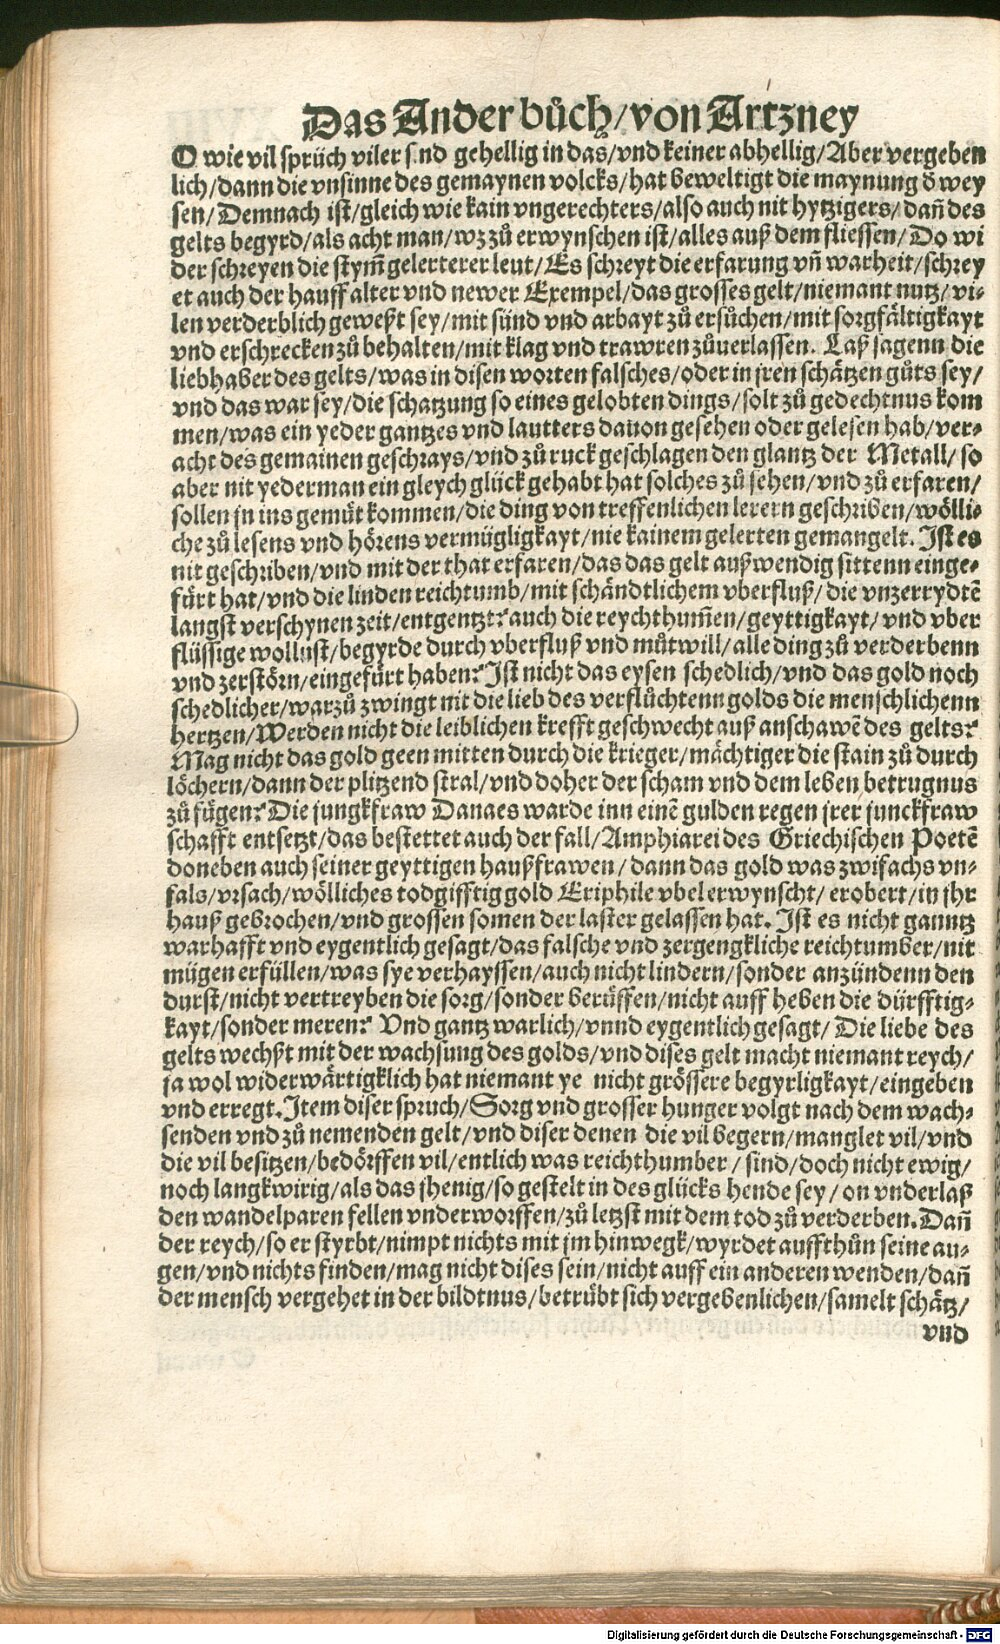 Das Ander bůch/von Artzney
O wie vil sprüch viler s nd gehellig in das/vnd keiner abhellig/Aber vergeben
lich/dann die vnsinne des gemaynen volcks/hat beweltigt die maynung d̕ wey
sen/Demnach ist/gleich wie kain vngerechters/also auch nit hytzigers/dañ des
gelts begyrd/als acht man/wz zů erwynschen ist/alles auß dem fliessen/Do wi
der schreyen die stym̃ gelerterer leut/Es schreyt die erfarung vñ warheit/schrey
et auch der hauff alter vnd newer Exempel/das grosses gelt/niemant nutz/vi-
len verderblich geweßt sey/mit sünd vnd arbayt zů ersůchen/mit sorgfältigkayt
vnd erschrecken zů behalten/mit klag vnd trawren zůuerlassen. Laß sagenn die
liebhaber des gelts/was in disen worten falsches/oder in jren schätzen gůts sey/
vnd das war sey/die schatzung so eines gelobten dings/solt zů gedechtnus kom
men/was ein yeder gantzes vnd lautters dauon gesehen oder gelesen hab/ver-
acht des gemainen geschrays/vnd zů ruck geschlagen den glantz der Metall/so
aber nit yederman ein gleych glück gehabt hat solches zů sehen/vnd zů erfaren/
sollen jn ins gemüt kommen/die ding von treffenlichen lerern geschriben/wölli-
che zů lesens vnd hörens vermügligkayt/nie kainem gelerten gemangelt. Ist es
nit geschriben/vnd mit der that erfaren/das das gelt außwendig sittenn einge-
fürt hat/vnd die linden reichtumb/mit schändtlichem vberfluß/die vnzerrydtẽ
langst verschynen zeit/entgentzt? auch die reychthum̃en/geyttigkayt/vnd vber
flüssige wollust/begyrde durch vberfluß vnd můtwill/alle ding zů verderbenn
vnd zerstörn/eingefürt haben? Ist nicht das eysen schedlich/vnd das gold noch
schedlicher/warzů zwingt nit die lieb des verflůchtenn golds die menschlichenn
hertzen/Werden nicht die leiblichen krefft geschwecht auß anschawẽ des gelts?
Mag nicht das gold geen mitten durch die krieger/mächtiger die stain zů durch
löchern/dann der plitzend stral/vnd doher der scham vnd dem leben betrugnus
zů fügen? Die jungkfraw Danaes warde inn einẽ gulden regen jrer junckfraw
schafft entsetzt/das bestettet auch der fall/Amphiarei des Griechischen Poetẽ
doneben auch seiner geyttigen haußfrawen/dann das gold was zwifachs vn-
fals/vrsach/wölliches todgifftig gold Eriphile vbel erwynscht/erobert/in jhr
hauß gebrochen/vnd grossen somen der laster gelassen hat. Ist es nicht ganntz
warhafft vnd eygentlich gesagt/das falsche vnd zergengkliche reichtumber/nit
mügen erfüllen/was sye verhayssen/auch nicht lindern/sonder anzündenn den
durst/nicht vertreyben die sorg/sonder berüffen/nicht auff heben die dürfftig-
kayt/sonder meren? Vnd gantz warlich/vnnd eygentlich gesagt/Die liebe des
gelts wechßt mit der wachsung des golds/vnd dises gelt macht niemant reych/
ja wol widerwärtigklich hat niemant ye nicht grössere begyrligkayt/eingeben
vnd erregt. Item diser spruch/Sorg vnd grosser hunger volgt nach dem wach-
senden vnd zů nemenden gelt/vnd diser denen die vil begern/manglet vil/vnd
die vil besitzen/bedörffen vil/entlich was reichthumber/sind/doch nicht ewig/
noch langkwirig/als das jhenig/so gestelt in des glücks hende sey/on vnderlaß
den wandelparen fellen vnderworffen/zů letzst mit dem tod zů verderben. Dañ
der reych/so er styrbt/nimpt nichts mit jm hinwegk/wyrdet auffthůn seine au-
gen/vnd nichts finden/mag nicht dises sein/nicht auff ein anderen wenden/dañ
der mensch vergehet in der bildtnus/betrübt sich vergebenlichen/samelt schätz/
vnd
Digitalisierung gefördert durch die Deutsche Forschungsgemeinschaft - DFG